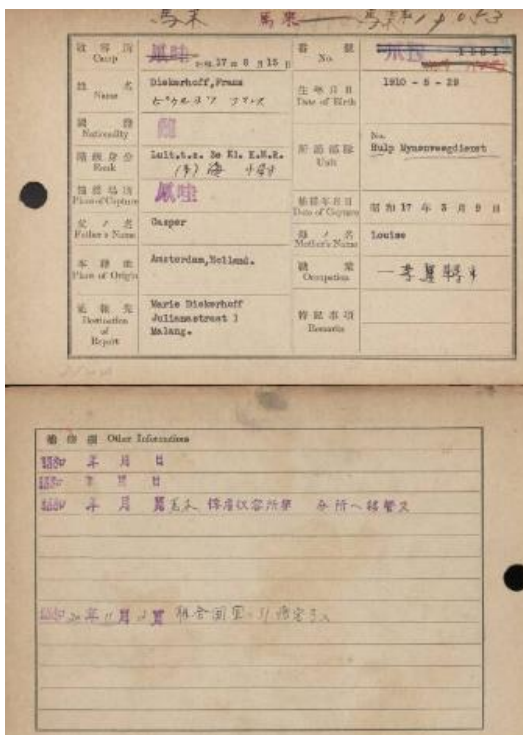 馬来 馬来
收容所 Camp 爪哇 昭和17年8月15日
番號 No.
姓名 Name Diekerhoff,Frans
生年月日 Date of Birth 1910 - 5 - 29
國籍 Nationality 蘭
階級身分 Rank Luit.t.z. 3e Kl. K.M.R.
海 少尉
所屬部隊 Unit No. Hulp Mynenveegdienst
捕獲場所 Place of Capture 爪哇
捕獲年月日 Date of Capture 昭和17年3月9日
父ノ名 Father's Name Casper
母ノ名 Mother's Name Louise
本籍地 Place of Origin Amsterdam,Holland.
職業 Occupation 一等運轉士
通報先 Destination of Report Marie Diekerhoff
Julianastraat 1
Malang.
特記事項 Remarks
補修欄 Other Informations
年 月 日
年 月 日
年 月 馬来 俘虜収容所第 分所ヘ移管ス
20年11月 日 聯合国軍ニ引渡完了ス